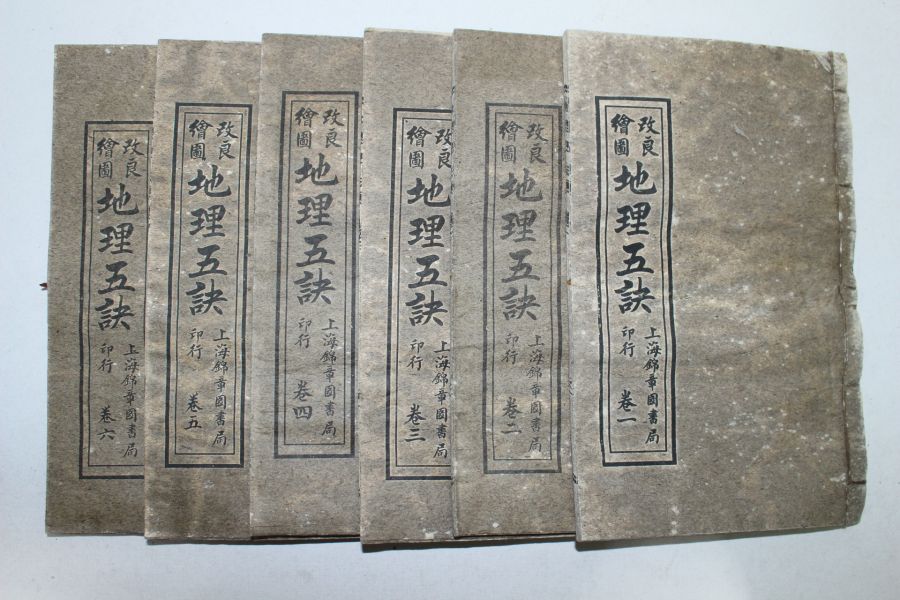 改良
繪圖
地理五訣
上海錦章圖書局
印行
卷一
改良
繪圖
地理五訣
上海錦章圖書局
印行
卷二
改良
繪圖
地理五訣
上海錦章圖書局
印行
卷三
改良
繪圖
地理五訣
上海錦章圖書局
印行
卷四
改良
繪圖
地理五訣
上海錦章圖書局
印行
卷五
改良
繪圖
地理五訣
上海錦章圖書局
印行
卷六